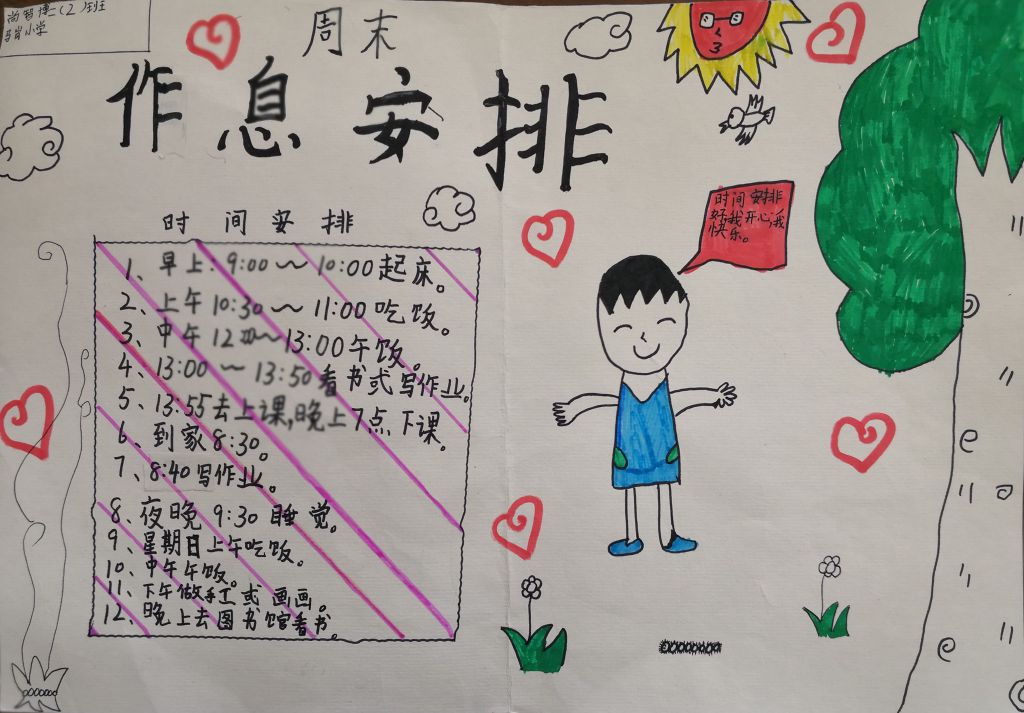 尚智博二(2)班
小学
周末
作息安排
时间安排
1、早上:9:00~10:00起床。
2、上午10:30~11:00吃饭。
3、中午12:~13:00午饭。
4、13:00~13:50看书或写作业。
5、13:55去上课,晚上7点下课。
6、到家8:30。
7、8:40写作业。
8、夜晚9:30睡觉。
9、星期日上午吃饭。
10、中午午饭。
11、下午做手工或画画。
12、晚上去图书馆看书。
时间安排
好,我开心,我
快乐。